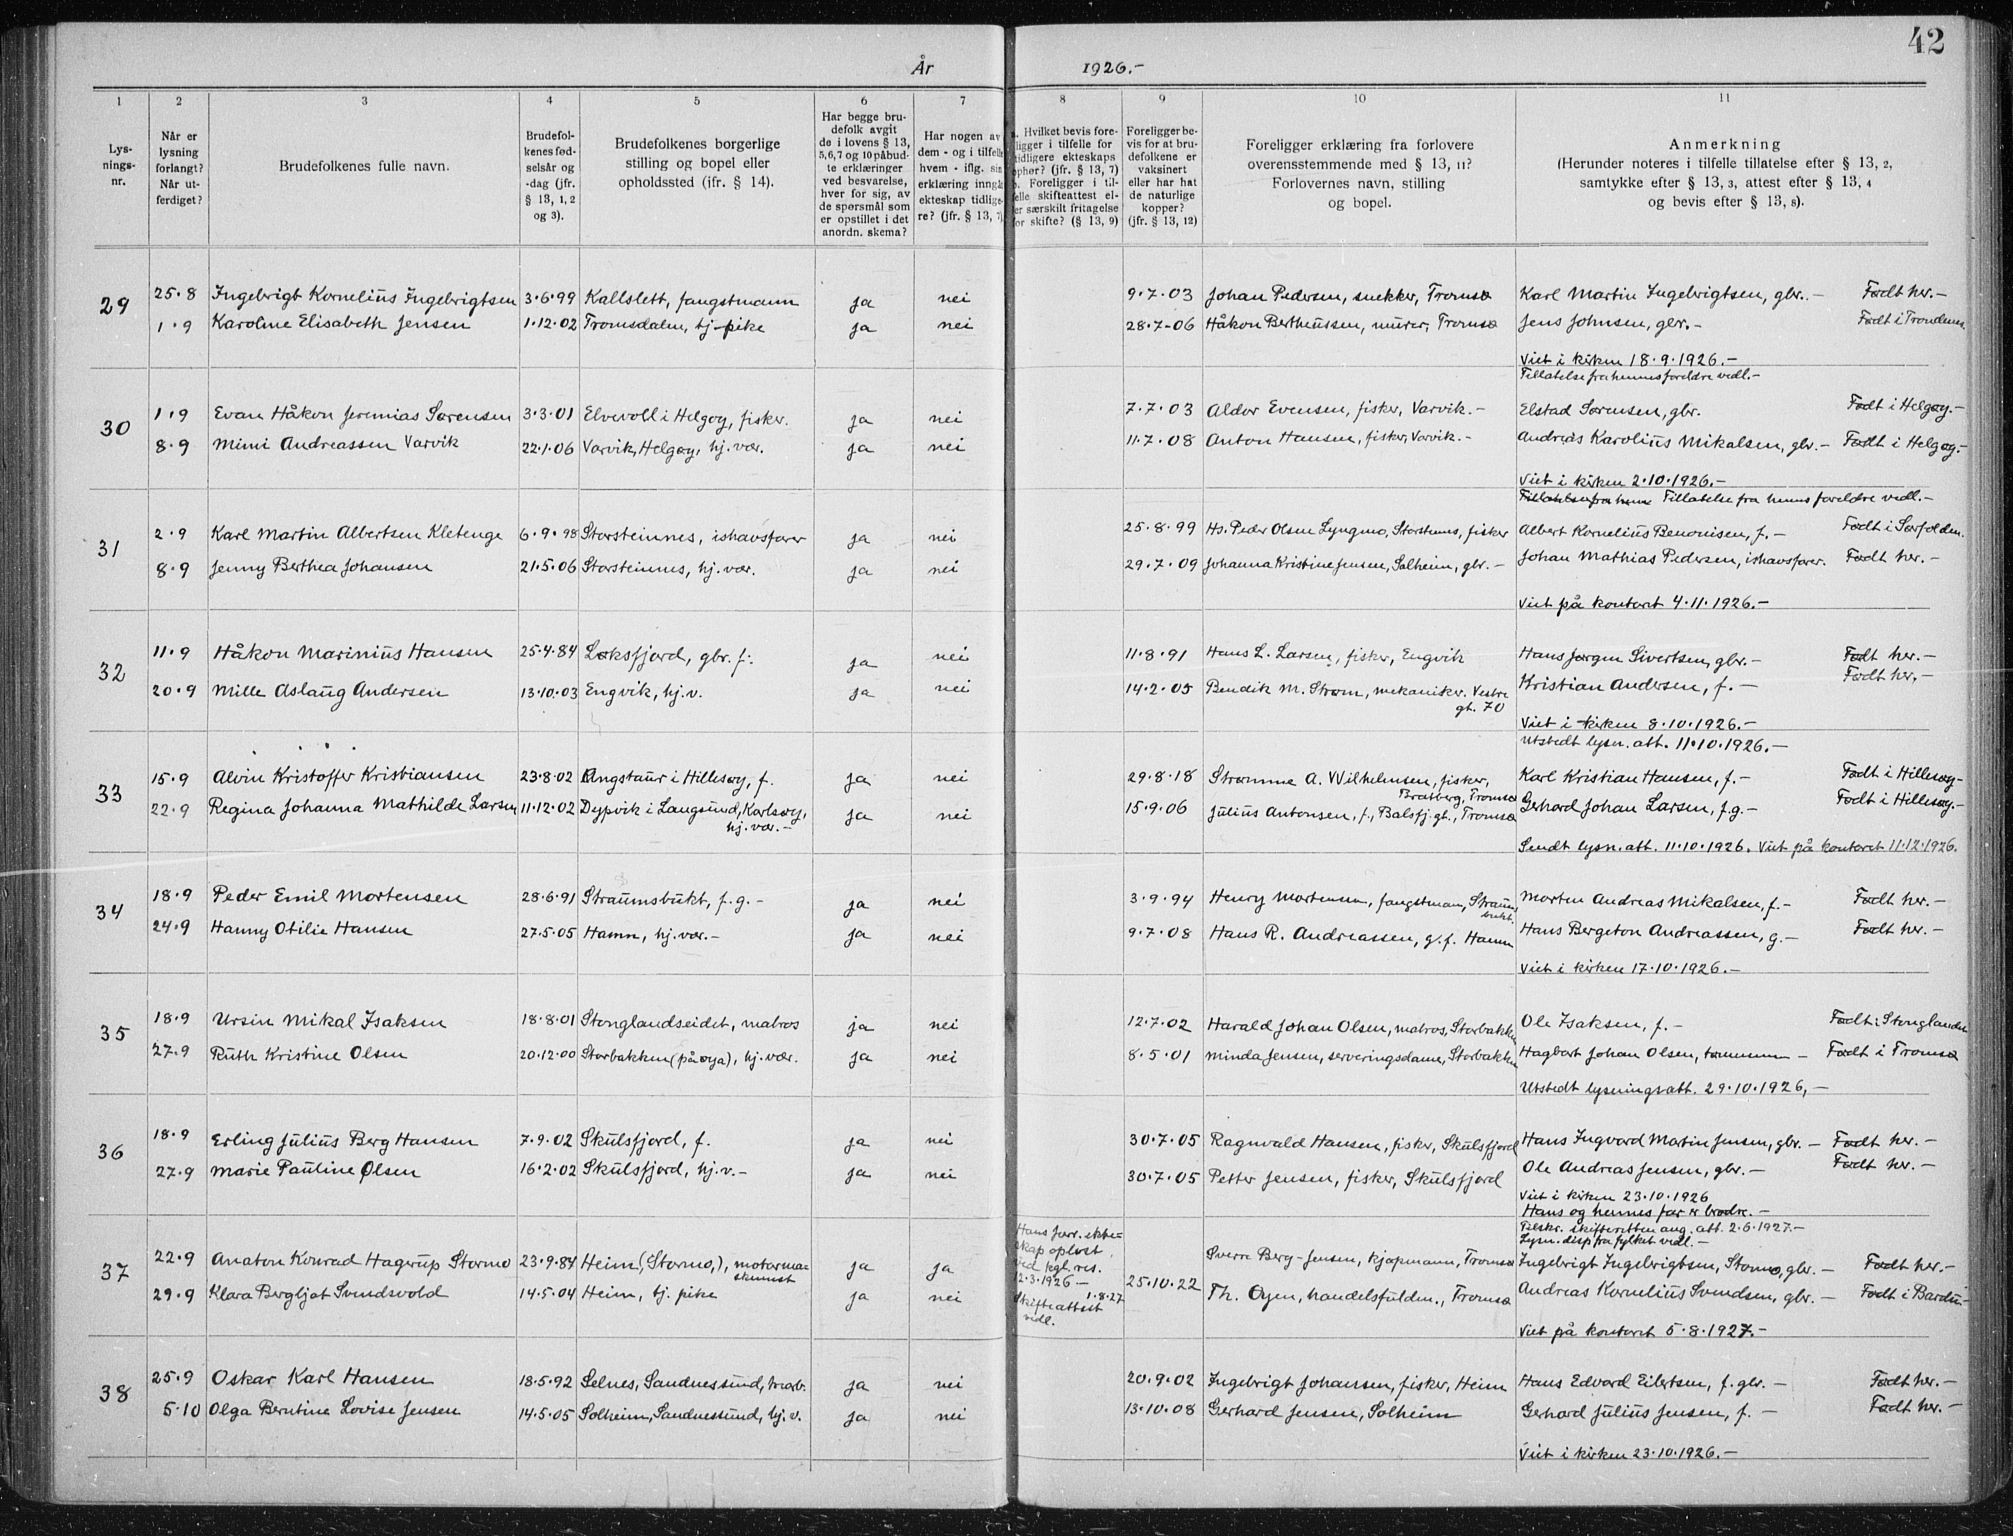 42
År 1926.-
1 2 3 4 5 6 7 8 9 10 11
Lys-
nings-
nr.
Når er
lysning
forlangt?
Når ut-
ferdiget?
Brudefolkenes fulle navn.
Brudefol-
kenes fød-
selsår og
-dag (jfr.
§ 13, 1, 2
og 3).
Brudefolkenes borgerlige
stilling og bopel eller
opholdssted (ifr. § 14).
Har begge bru-
defolk avgit
de i lovens § 13,
5,6,7 og 10 påbud-
te erklæringer
ved besvarelse,
hver for sig, av
de spørsmål som
er opstillet i det
anordn. skema?
Har nogen av
dem - og i tilfelle
hvem - iflg. sin
erklæring inngå
ekteskap tidlige-
re? (jfr. § 13, 7)
a. Hvilket bevis fore-
ligger i tilfelle for
tidligere ekteskaps
ophør? (jfr. § 13, 7)
b. Foreligger i til-
felle skifteattest el-
ler særskilt fritagelse
for skifte? (§ 13, 9)
Foreligger be-
vis for at bru-
defolkene er
vaksinert
eller har hat
de naturlige
kopper?
(jfr. § 13, 12)
Foreligger erklæring fra forlovere
overensstemmende med § 13, 11?
Forlovernes navn, stilling
og bopel.
Anmerkning
(Herunder noteres i tilfelle tillatelse efter § 13, 2,
samtykke efter § 13, 3, attest efter § 13, 4
og bevis efter § 13, 8).
29 25.8 Ingebrigt Kornelius Ingebrigtsen 3.6.99 Kallslett, fangstmann ja nei 9.7.03 Johan Pedersen, snekker, Tromsø Karl Martin Ingebrigtsen, gbr.- Født her.-
1.9 Karoline Elisabeth Jensen 1.12.02 Tromsdalen, tj-pike ja nei 28.7-06 Håkon Bertheussen, murer, Tromsø Jens Johnsen, gbr.- Født i Trondenes.
Viet i kirken 18.9.1926.-
Tillatelse fra hennes foreldre vedl.-
30 1.9 Evan Håkon Jeremias Sørensen 3.3.01 Elvevoll i Helgøy, fisker. ja nei 7.7.03 Aldor Evensen, fisker, Varvik.- Elstad Sørensen, gbr. Født i Helgøy.-
8.9 Mimi Andreassen Varvik 22.1.06 Varvik, Helgøy, hj. vær. ja nei 11.7.08 Anton Hansen, fisker, Varvik.- Andreas Karolius Mikalsen, gbr.- Født i Helgøy.-
Viet i kirken 2.10.1926.-
Tillatelse fra henn Tillatelse fra hennes foreldre vedl.-
31 2.9 Karl Martin Albertsen Kletenge 6.9.98 Storsteinnes, ishavsfarer ja nei 25.8.99 Hs. Peder Olsen Lyngmo, Storstennes, fisker Albert Kornelius Benonisen, f.- Født i Sørfolden.
8.9 Jenny Berthea Johansen 21.5.06 Storsteinnes, hj. vær. ja nei 29.7.09 Johanna Kristine Jensen, Solheim, gbr.- Johan Mathias Pedersen, ishavsfarer. Født her.-
Viet på kontoret 4.11.1926.-
32 11.9 Håkon Marinius Hansen 25.4.84 Løksfjord, gbr. f.. ja nei 11.8.91 Hans L. Larsen, fisker, Engvik Hans Jørgen Sivertsen, gbr.- Født her.-
20.9 Mille Aslaug Andersen 13.10.03 Engvik, hj.v. ja nei 14.2.05 Bendik M. Strøm, mekaniker. Vestre
gt. 70 Kristian Andersen, f.- Født her.-
Viet i kirken 8.10.1926.-
Utstedt lysn. att. 11.10.1926.-
33 15.9 Alvin Kristoffer Kristiansen 23.8.02 Angstaur i Hillesøy, f. ja nei 29.8.18 Strømme A. Wilhelmsen, fisker,
Bratberg, Tromsø Karl Kristian Hansen, f.- Født i Hillesøy-
22.9 Regina Johanna Mathilde Larsen 11.12.02 Dypvik i Langsund, Karlsøy,
hj. vær.- ja nei 15.9.06 Julius Antonsen, f., Balsfj.gt., Tromsø Gerhard Johan Larsen, f.g.- Født i Hillesøy.-
Sendt lysn. att. 11.10.1926. Viet på kontoret 11.12.1926.
34 18.9 Peder Emil Mortensen 28.6.91 Straumsbukt, f.g.- ja nei 3.9.94 Henry Mortensen, fangstmann, Straums
bukt. Morten Andreas Mikalsen, f.- Født her.-
24.9 Hanny Otilie Hansen 27.5.05 Hamn, hj. vær.- ja nei 9.7.08 Hans R. Andreassen, g.f. Hamn Hans Bergeton Andreassen, g.- Født her.-
Viet i kirken 17.10.1926.-
35 18.9 Ursin Mikal Isaksen 18.8.01 Stonglandseidet, matros ja nei 12.7.02 Harald Johan Olsen, matros, Storbakken Ole Isaksen, f.- Født i Stonglandet
27.9 Ruth Kristine Olsen 20.12.00 Storbakken (på øya), hj. vær. ja nei 8.5.01 Minda Jensen, serveringsdame, Storbakken Hagbart Johan Olsen, tømmerm- Født i Tromsø
Utstedt lysningsatt. 29.10.1926,-
36 18.9 Erling Julius Berg Hansen 7.9.02 Skulsfjord, f. ja nei 30.7.05 Ragnvald Hansen, fisker, Skulsfjord Hans Ingvard Martin Jensen, gbr.- Født her.-
27.9 Marie Pauline Olsen 16.2.02 Skulsfjord, hj.v.- ja nei 30.7.05 Petter Jensen, fisker, Skulsfjord Ole Andreas Jensen, gbr.- Født her.-
Viet i kirken 23.10.1926
Hans og hennes far er brødre.-
Telskr. skifteretten ang. att. 2.6.1927.-
Lysn. disp fra fylket vedl.-
37 22.9 Anaton Konrad Hagerup Stormo 23.9.84 Heim, (Stormo,), motorma-
skinist ja ja Hans forr. ekte-
skap opløst
ved kgl. res.
12.3.1926- Sverre Berg-Jensen, kjøpmann, Tromsø Ingebrigt Ingebrigtsen, Stormo, gbr.- Født her.-
29.9 Klara Bergljot Svendsvold 14.5.04 Heim, tj. pike ja nei 1.8.27
Skifteattest
vedl. 25.10.22 Th. Øyen, handelsfuldm., Tromsø Andreas Kornelius Svendsen, gbr.- Født i Bardu-
Viet på kontoret 5.8.1927.-
38 25.9 Oskar Karl Hansen 18.5.92 Selnes, Sandnessund, marb. ja nei 20.9.02 Ingebrigt Johansen, fisker, Heim Hans Edvard Eilertsen, f. gbr.- Født her.-
5.10 Olga Berntine Lovise Jensen 14.5.05 Solheim, Sandnessund, hj.v. ja nei 13.10.08 Gerhard Jensen, Solheim Gerhard Julius Jensen, f.- Født her.-
Viet i kirken 23.10.1926.-